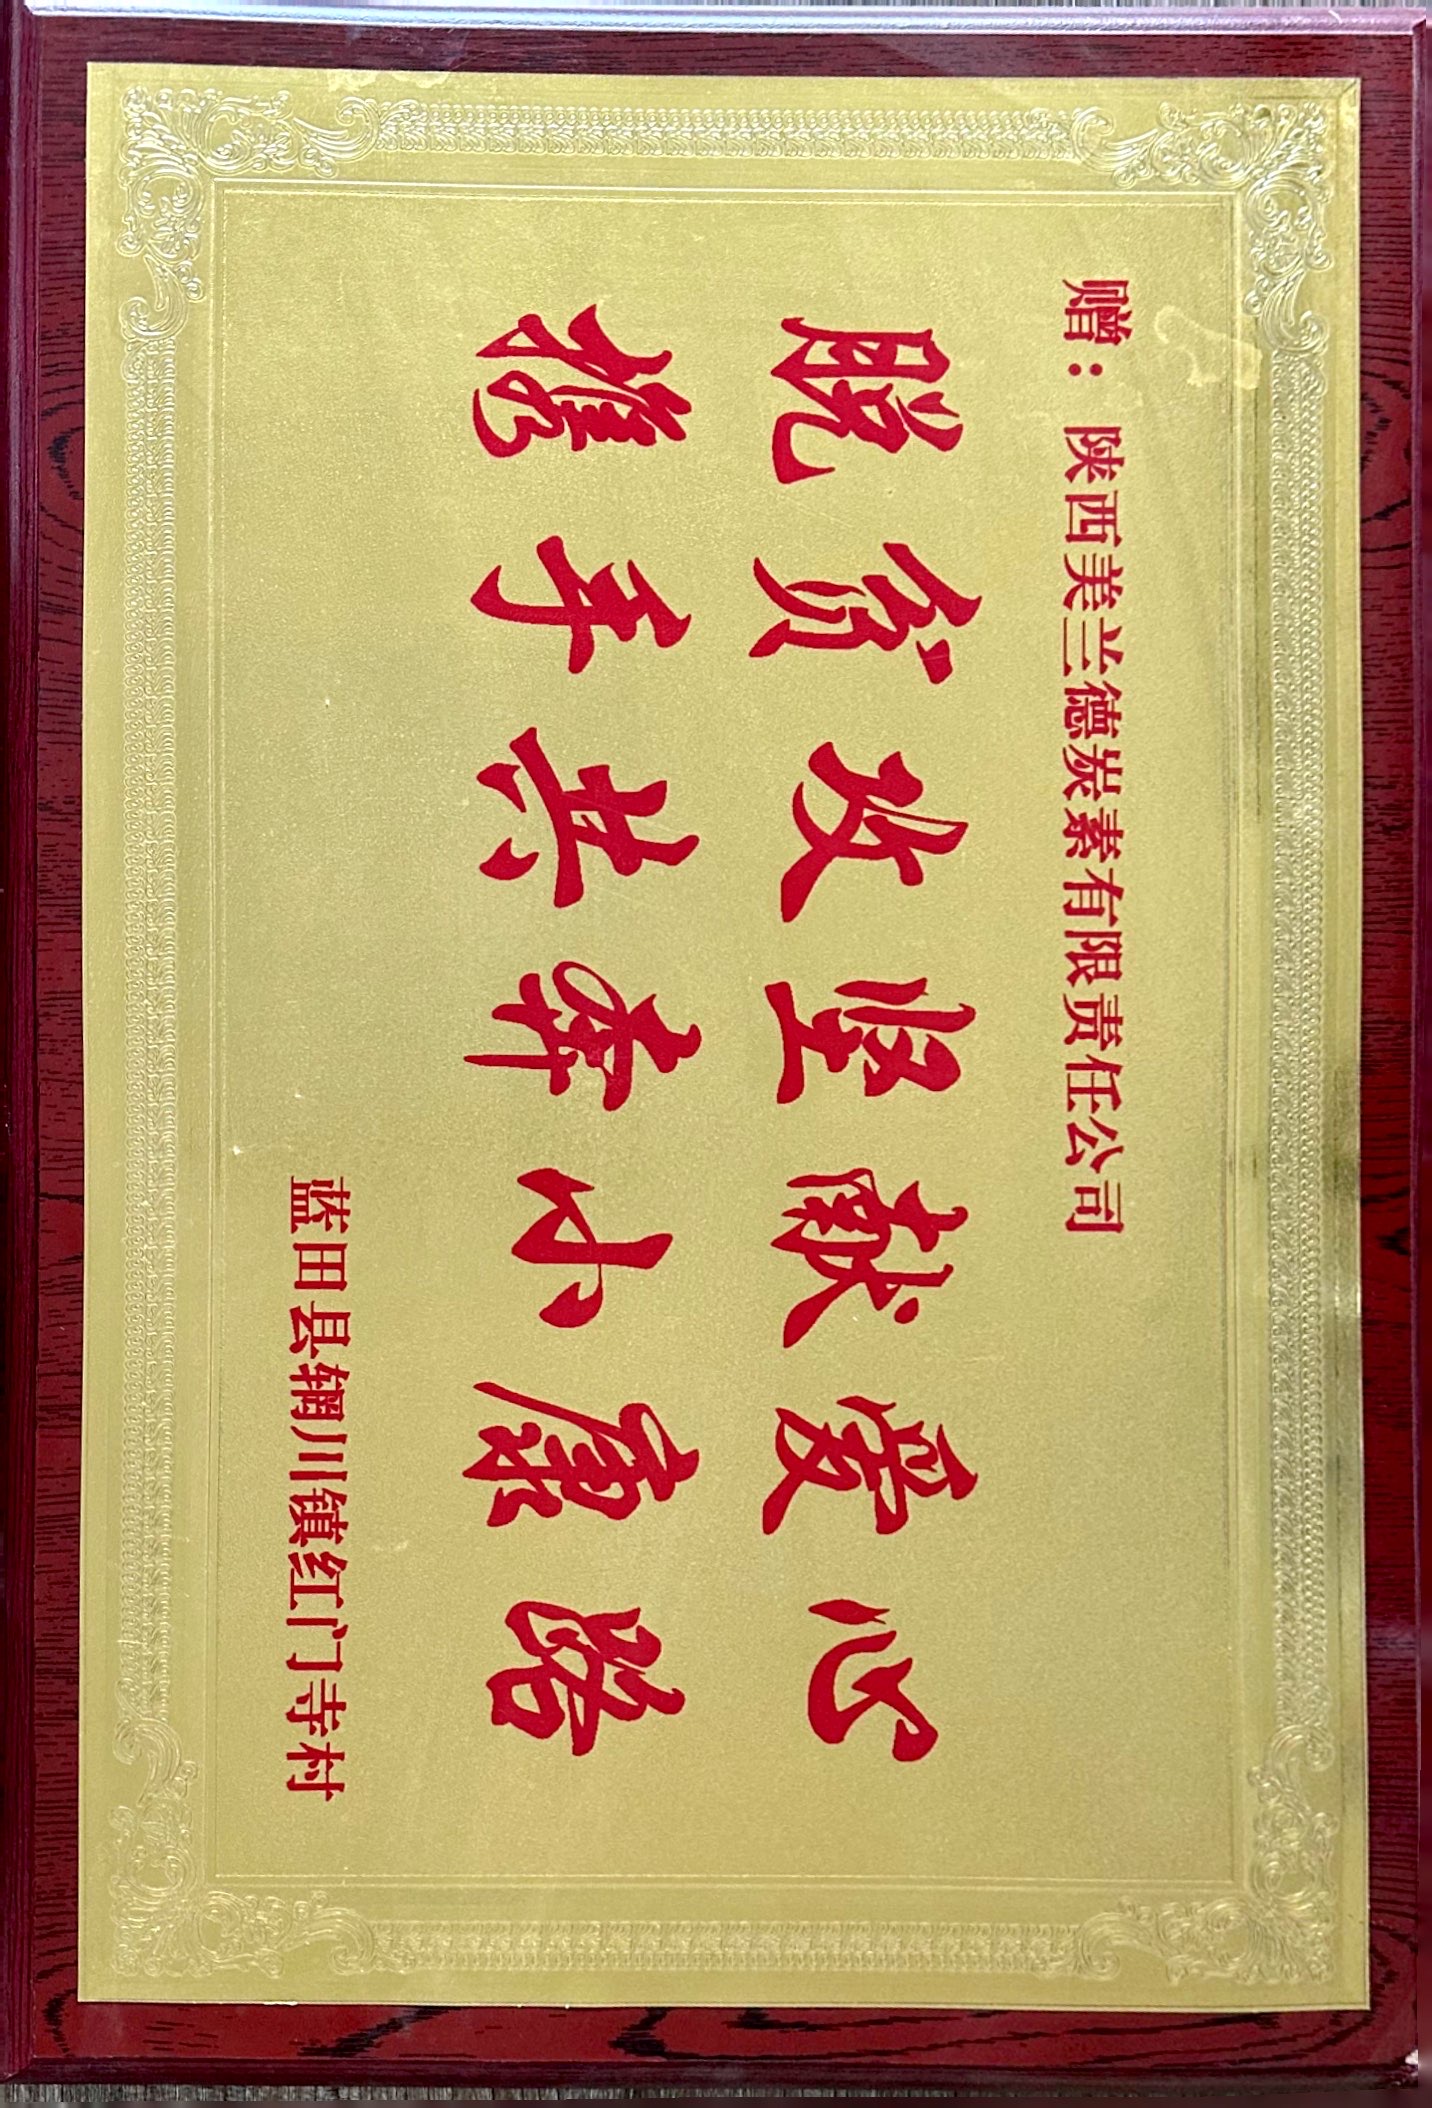 赠：陕西美兰德炭素有限责任公司
脱贫攻坚献爱心
携手共奔小康路
蓝田县辋川镇红门寺村